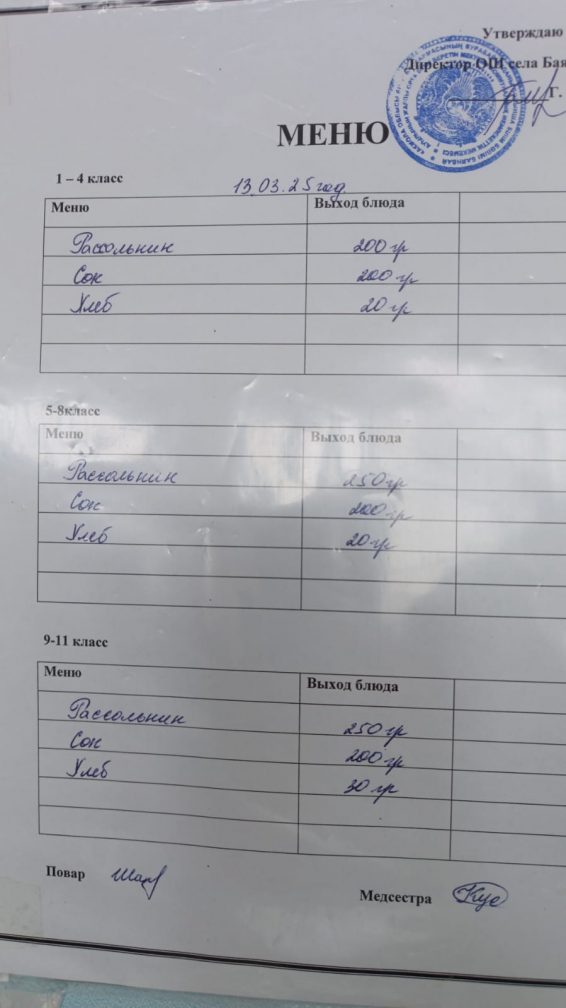 Утверждаю
Директор ОШ села Бая
Г.
МЕНЮ
1 – 4 класс
13.03.25 год
Меню Выход блюда
Рассольник 200 гр
Сок 200 гр
Хлеб 20 гр
5-8класс
Меню Выход блюда
Рассольник 250 гр
Сок 200 гр
Хлеб 20 гр
9-11 класс
Меню Выход блюда
Рассольник 250 гр
Сок 200 гр
Хлеб 30 гр
Повар
Медсестра